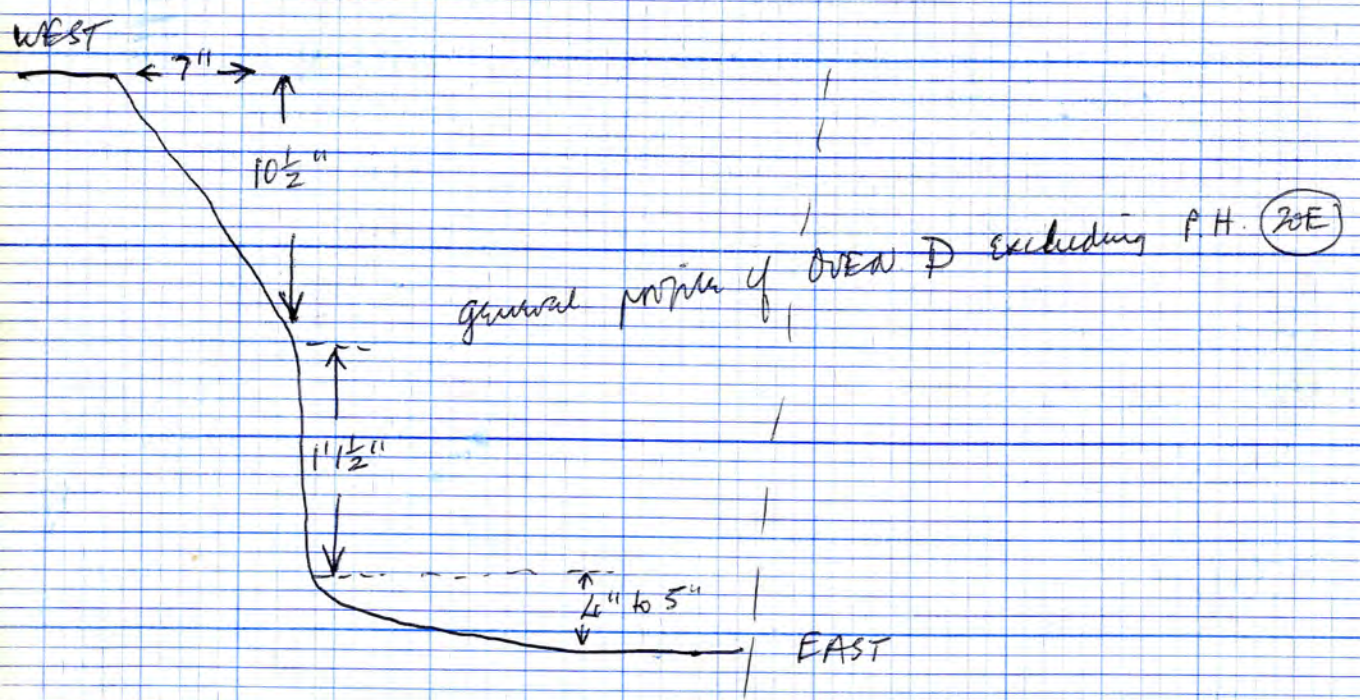 WEST
7"
10½"
general profile of OVEN D excluding P.H. 20E
1'1½"
4" to 5"
EAST